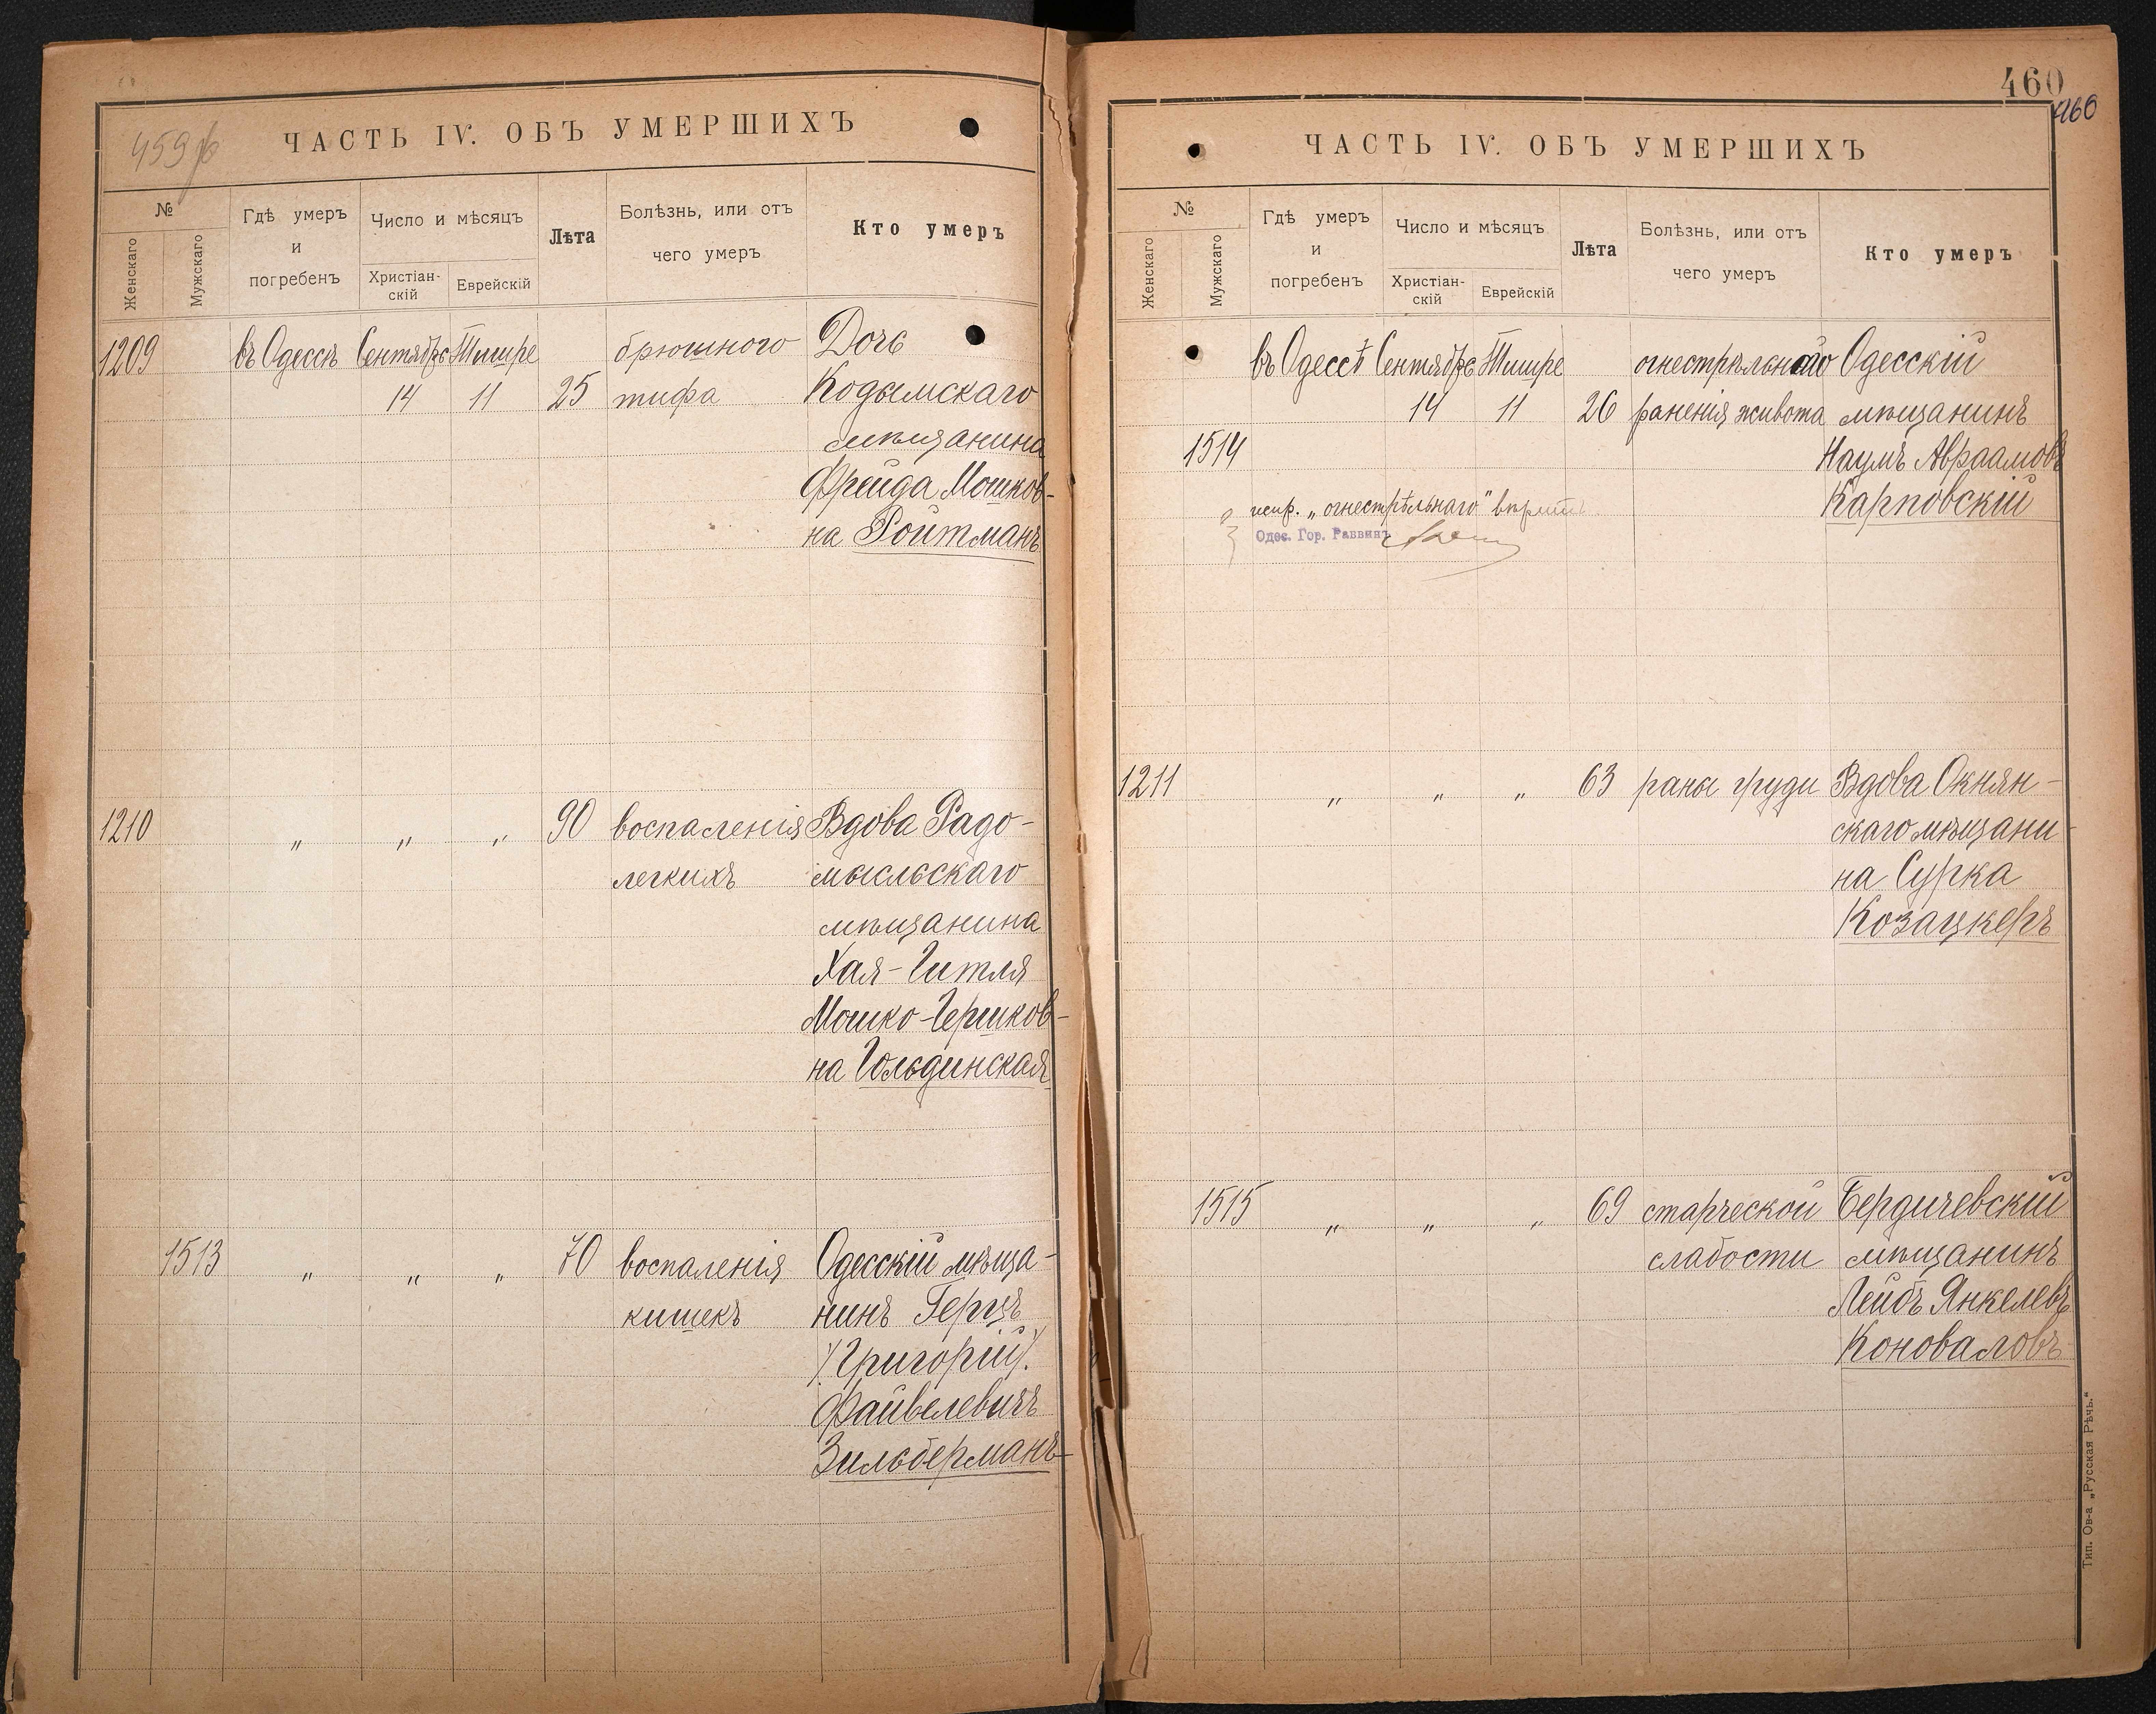 459 б
ЧАСТЬ IV. ОБЪ УМЕРШИХЪ
№
Женскаго
Мужскаго
Гдѣ умеръ
и
погребенъ
Число и мѣсяцъ
Христіан-
скій
Еврейскій
Лѣта
Болѣзнь, или отъ
чего умеръ
Кто умеръ
1209 въ Одессѣ Сентябрь Тишре брюшного Дочь
14 11 25 тифа Кодымскаго
мѣщанина
Фрейда Мошков-
на Ройтманъ
1210 „ „ „ 90 воспаленія Вдова Радо-
легкихъ мысльскаго
мѣщанина
Хая-Гитля
Мошко-Гершков-
на Гольдинская
1513 „ „ „ 70 воспаленія Одесскій мѣща-
кишекъ нинъ Герцъ
/Григорій/.
Файвелевичъ
Зильберманъ
460
460
ЧАСТЬ IV. ОБЪ УМЕРШИХЪ
№
Женскаго
Мужскаго
Гдѣ умеръ
и
погребенъ
Число и мѣсяцъ
Христіан-
скій
Еврейскій
Лѣта
Болѣзнь, или отъ
чего умеръ
Кто умеръ
въ Одессѣ Сентябрь Тишре огнестрѣльнаго Одесскій
14 11 26 раненія живота мѣщанинъ
1514 Наумъ Авраамовъ
Карповскій
испр. „огнестрѣльнаго"
Одес. Гор. Раввинъ
1211 „ „ „ 63 раны груди Вдова Окнян-
скаго мѣщани-
на Сурка
Козацкеръ
1515 „ „ „ 69 старческой Бердичевскій
слабости мѣщанинъ
Лейбъ Янкелевъ
Коноваловъ
Тип. Ов-а „Русская Рѣчь."